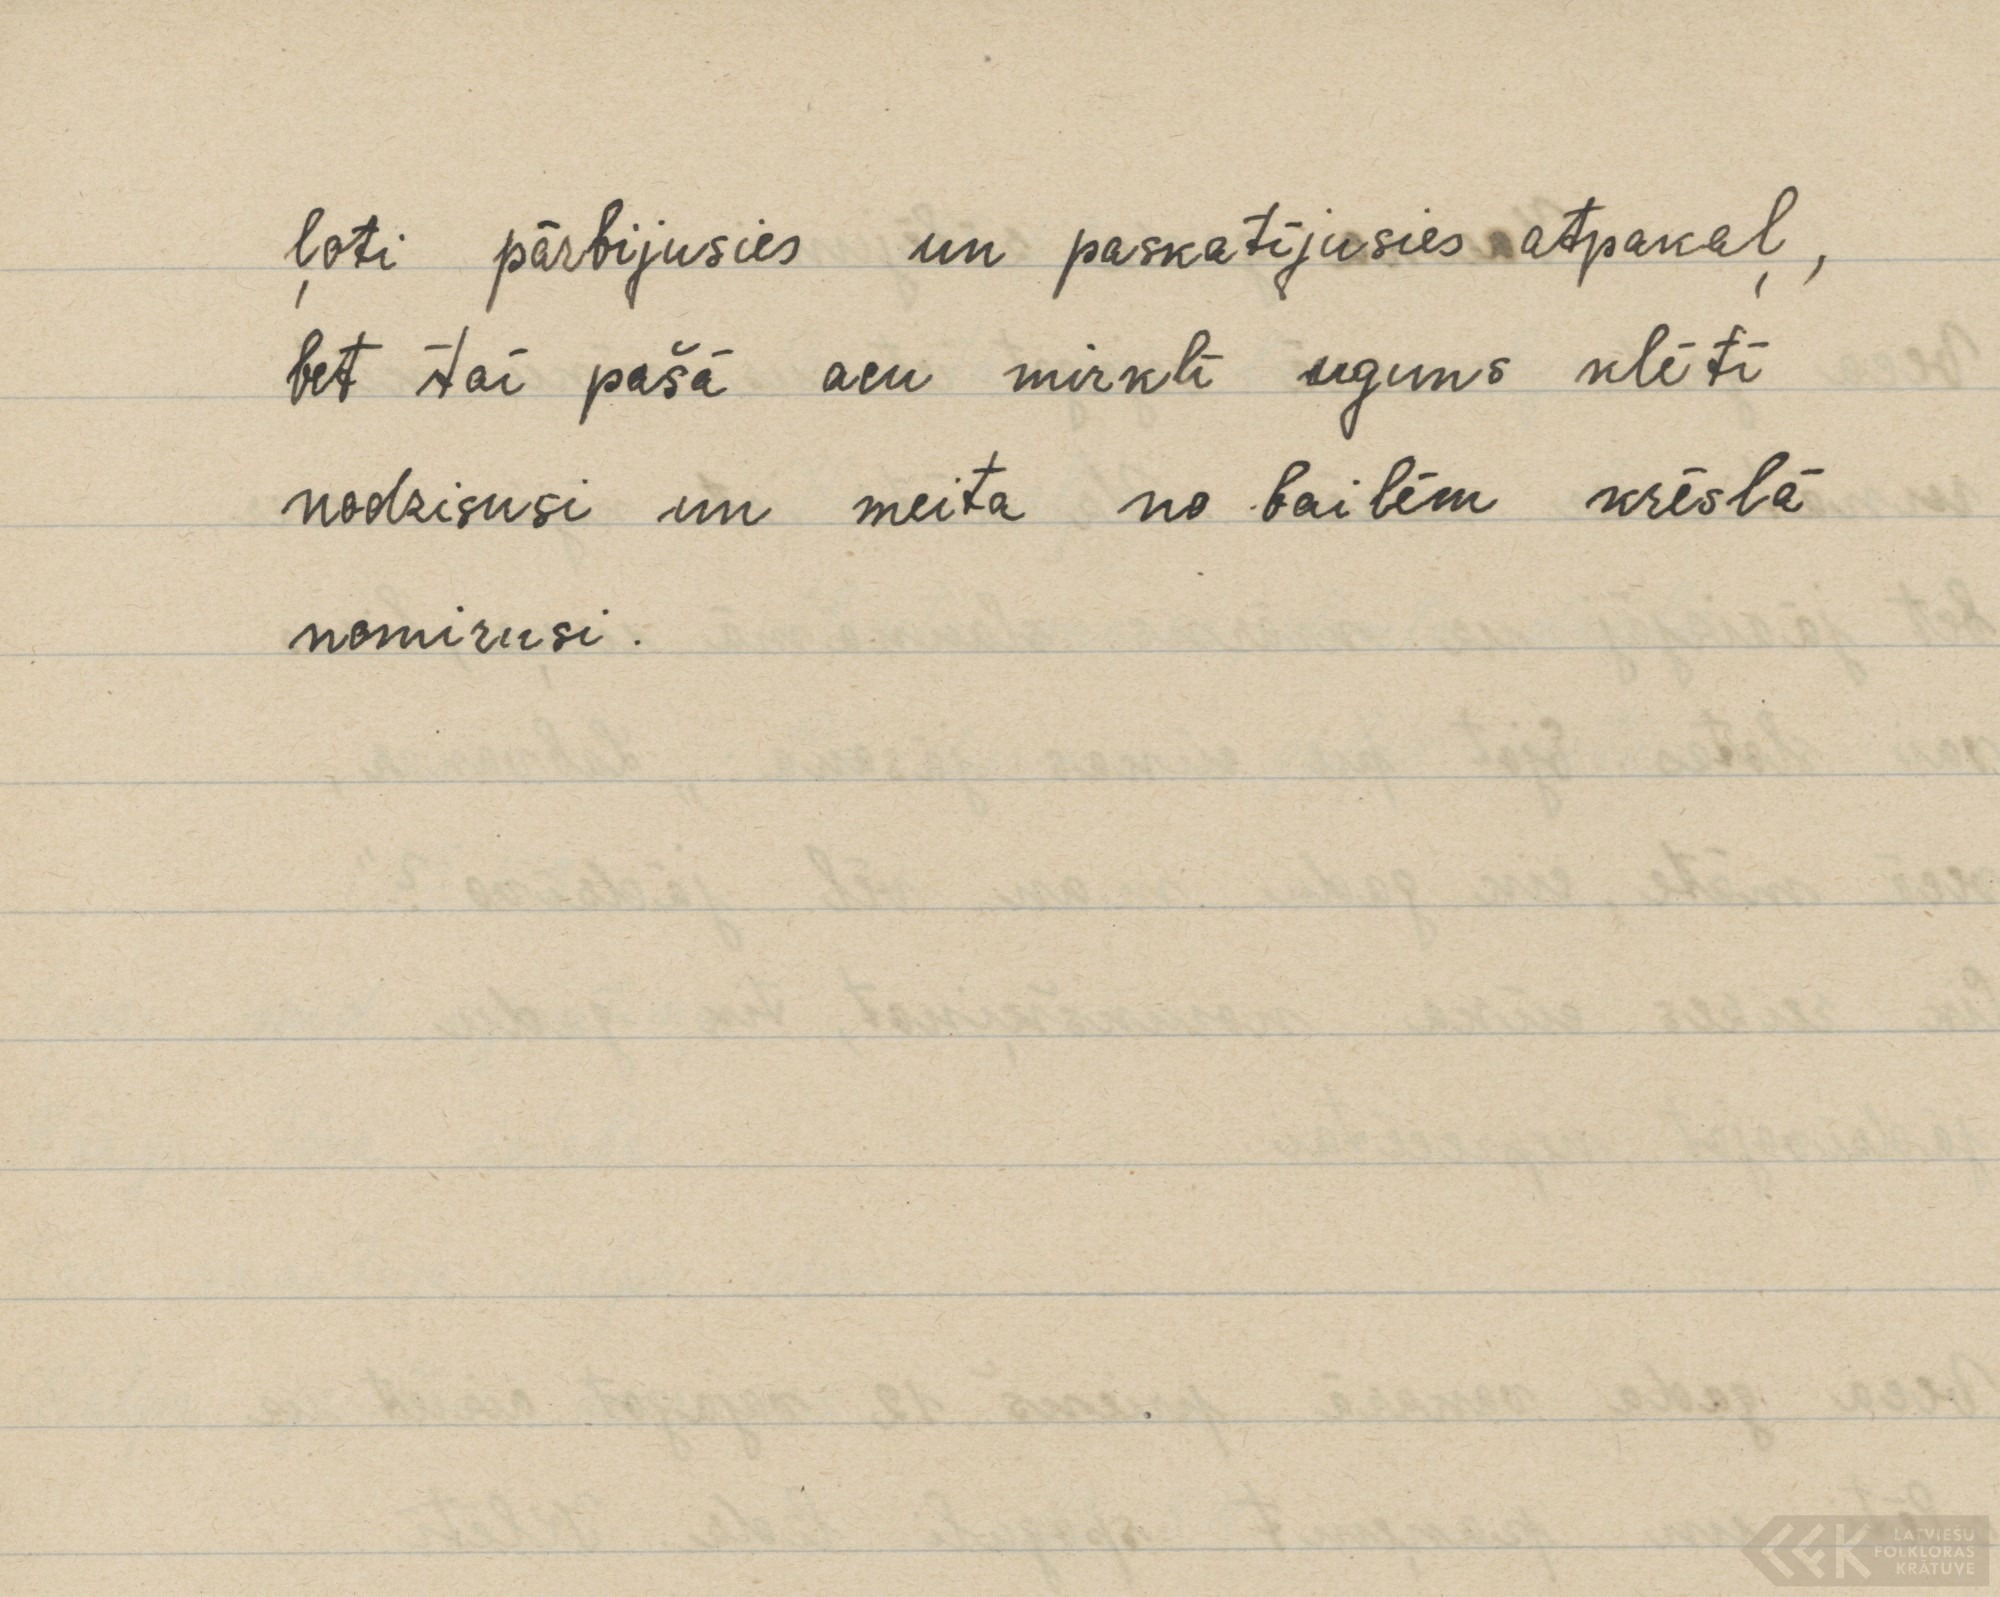 ļoti pārbijusies un paskatījusies atpakaļ,
bet tai pašā acu mirklī uguns klētī
nodzisusi un meita no bailēm krēslā
nomirusi.
LATVIEŠU
FOLKLORAS
KRĀTUVE